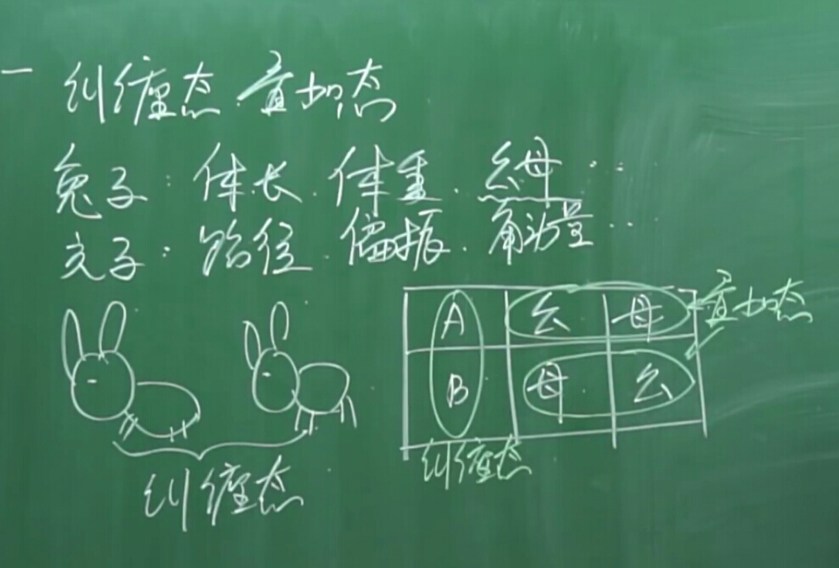 一 纠缠态.叠加态
兔子：体长.体重.公母……
光子：路径.偏振.角动量……
A 公 母 叠加态
B 母 公
纠缠态
纠缠态